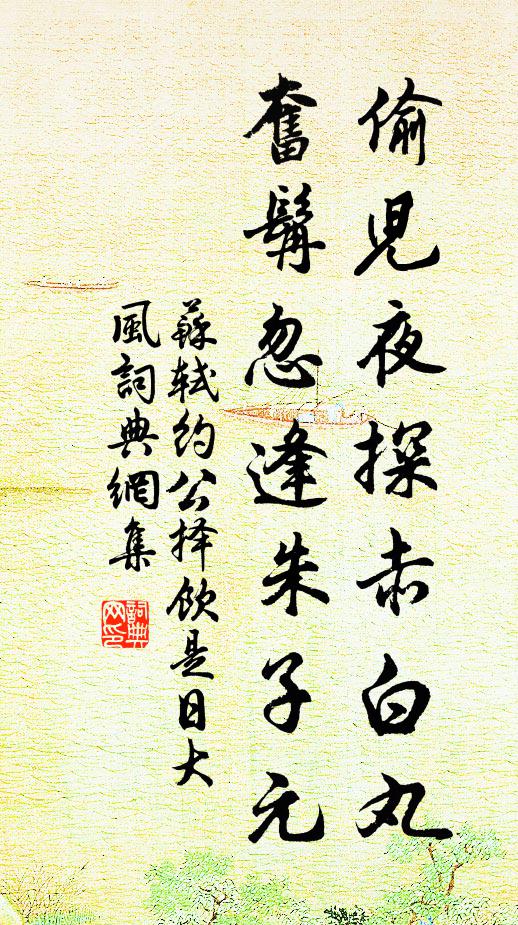 偷兒夜探赤白丸
奮髯忽逢朱子元
蘇軾約公择飲是日大
風詞典網集
詞典网印